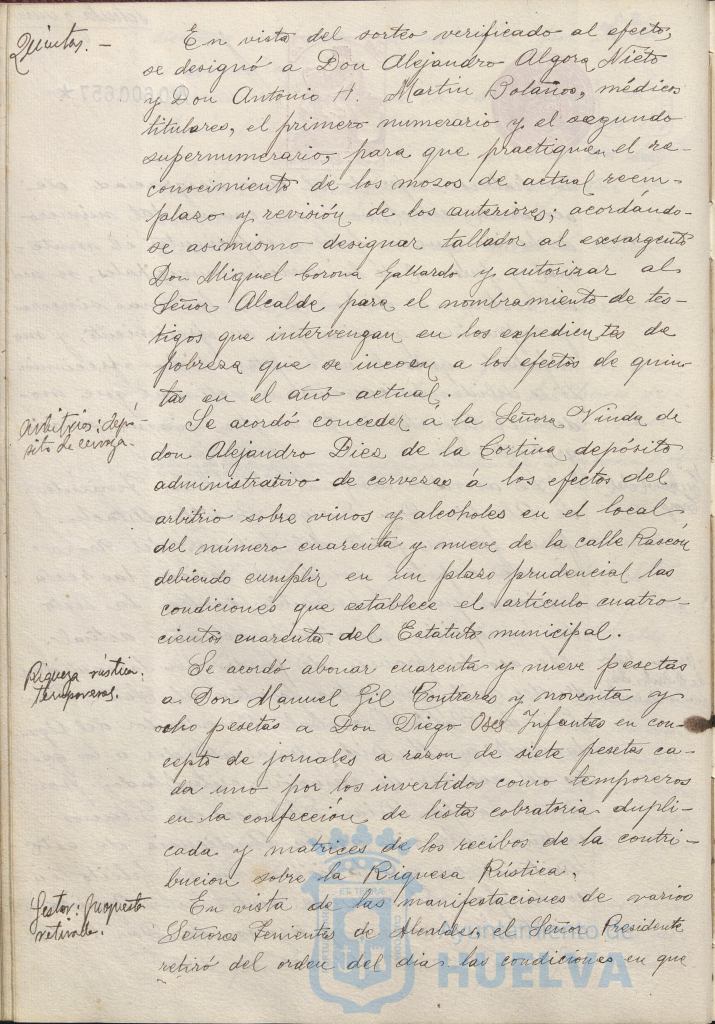 Quintas.—
En vista del sorteo verificado al efecto,
se designó a Don Alejandro Algora Nieto
y Don Antonio H. Martin Bolaños, médicos
titulares, el primero numerario y el segundo
supernumerario, para que practiquen el re-
conocimiento de los mosos de actual reem-
plazo y revisión de los anteriores; acordándo-
se asimismo designar tallador al exsargento
Don Miguel Corona Gallardo y autorizar al
Señor Alcalde para el nombramiento de tes-
tigos que intervengan en los expedientes de
pobreza que se incoen a los efectos de quin-
tas en el año actual.
Arbitrios: depó-
sito de cerveza.
Se acordó conceder á la Señora Viuda de
don Alejandro Diez de la Cortina depósito
administrativo de cervezas á los efectos del
arbitrio sobre vinos y alcoholes en el local
del número cuarenta y nueve de la calle Rascón
debiendo cumplir en un plazo prudencial las
condiciones que establece el artículo cuatro-
cientos cuarenta del Estatuto municipal.
Riqueza rústica:
temporeros.
Se acordó abonar cuarenta y nueve pesetas
a Don Manuel Gil Contreras y noventa y
ocho pesetas a Don Diego Oses Infantes en con-
cepto de jornales a razon de siete pesetas ca-
da uno por los invertidos como temporeros
en la confección de lista cobratoria dupli-
cada y matrices de los recibos de la contri-
bucion sobre la Riquesa Rústica.
retirada.
En vista de las manifestaciones de varios
Señores Tenientes de Alcaldes, el Señor Presidente
retiró del orden del dia las condiciones en que
Ayuntamiento de
HUELVA